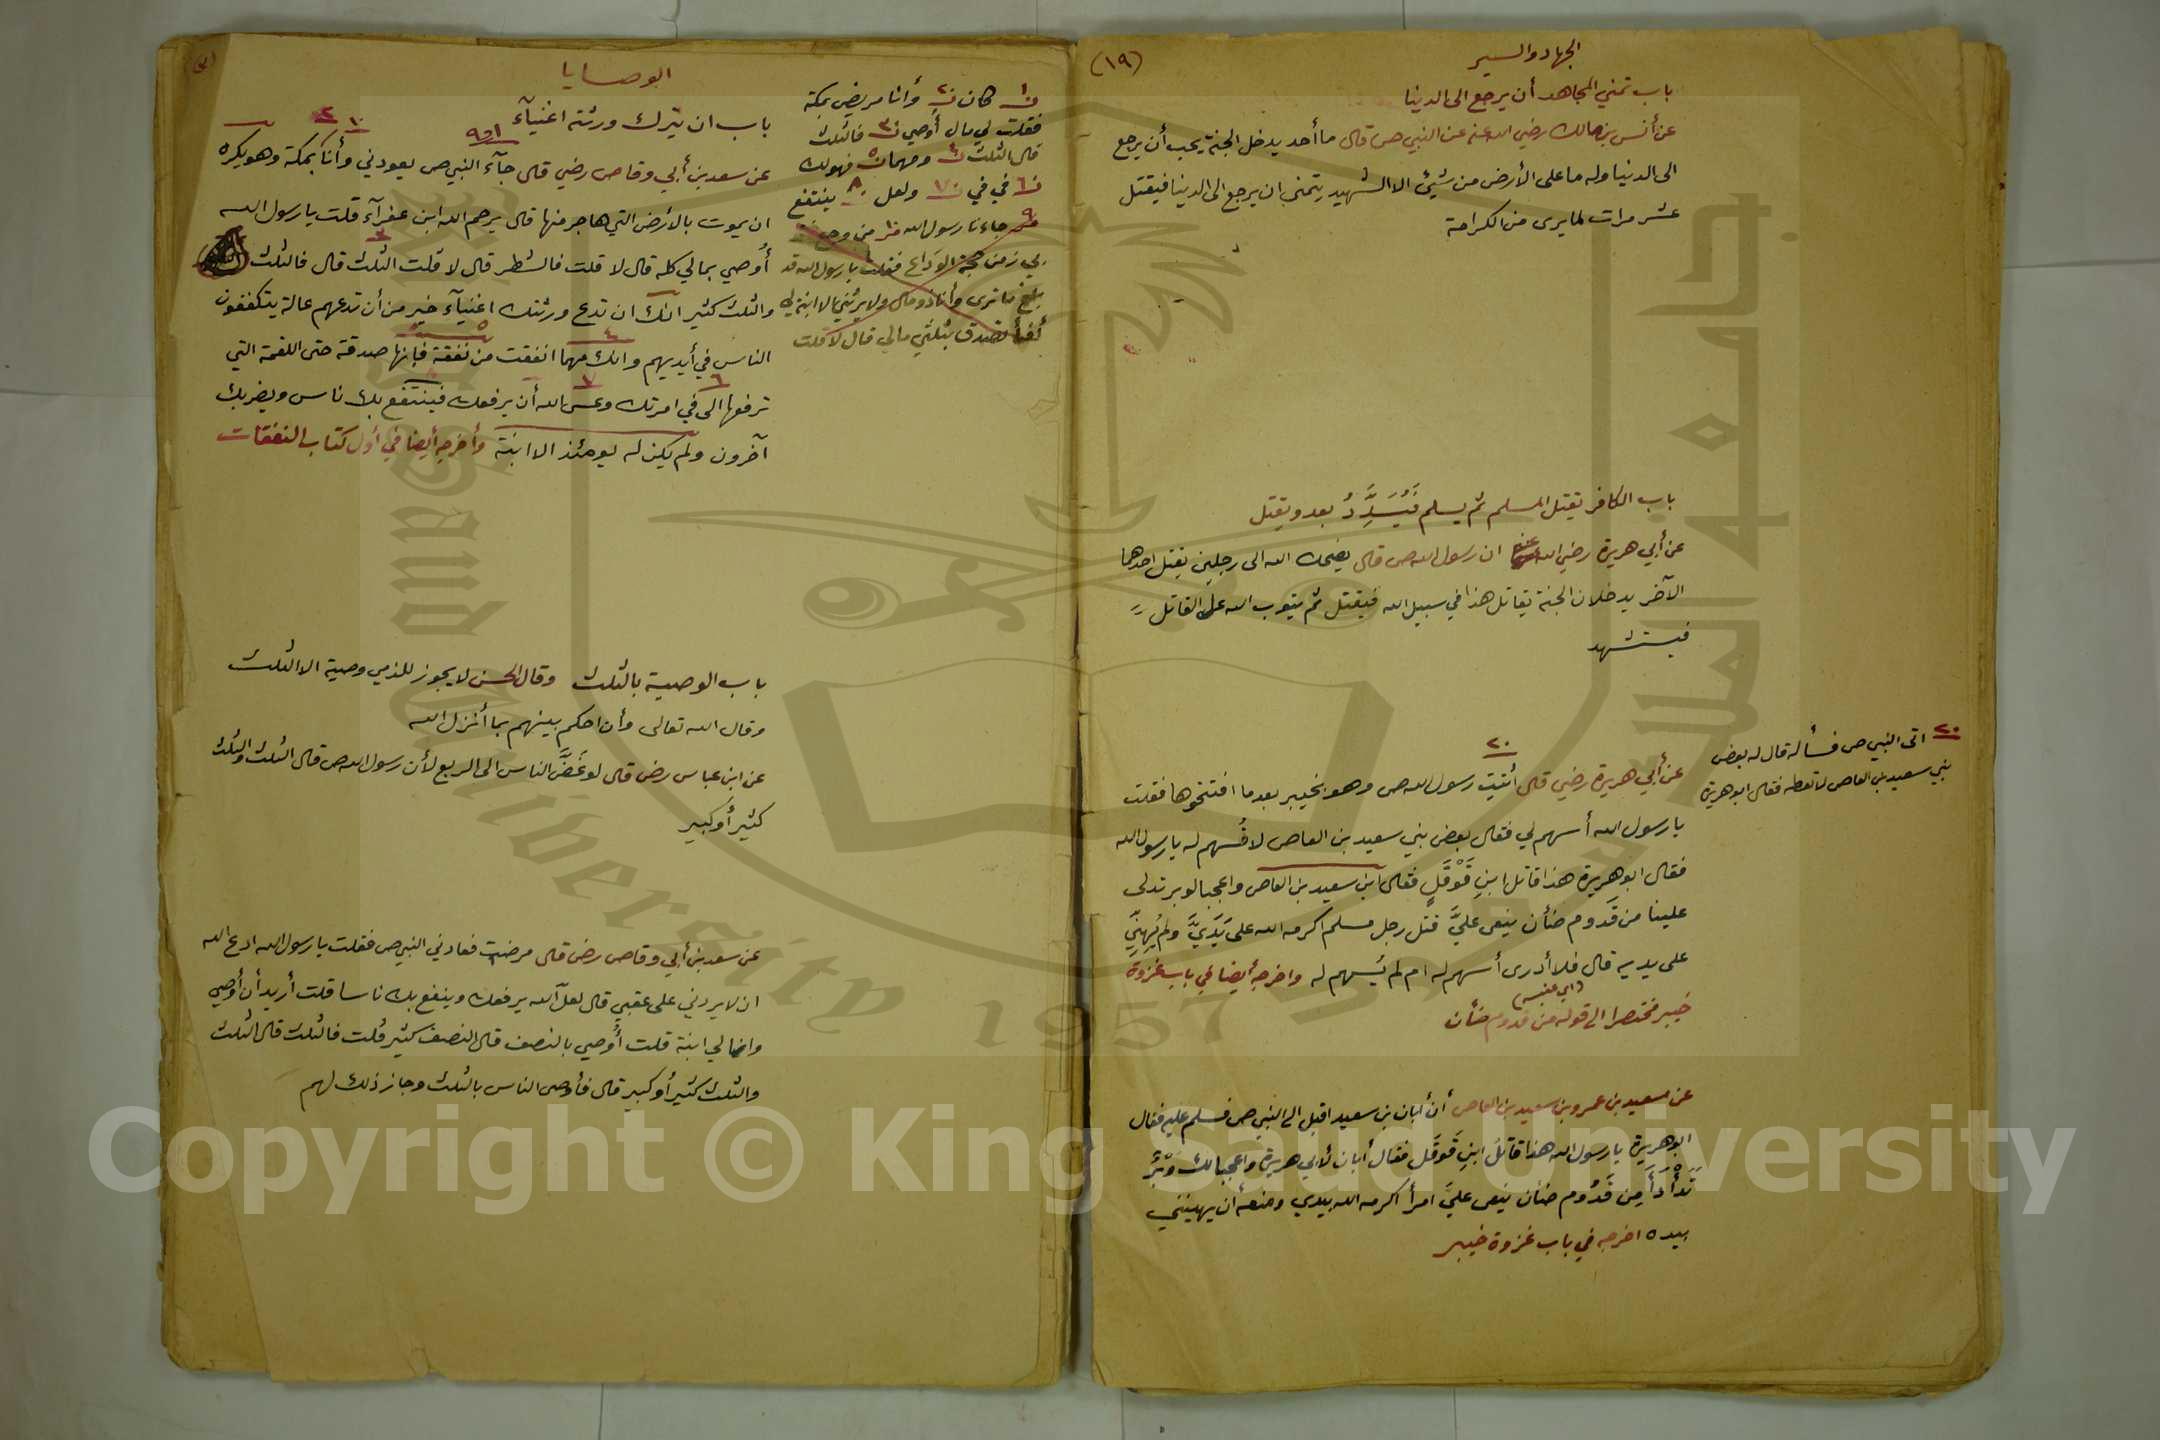 (١٩)
الجهاد والسير
باب تمني المجاهد أن يرجع الى الدنيا
عن أنس بن مالك رضي الله عنه عن النبي ص قال ما أحد يدخل الجنة يحب أن يرجع
الى الدنيا وله ما على الأرض من شيئ الا الشهيد يتمنى ان يرجع الى الدنيا فيقتل
عشر مرات لما يرى من الكرامة
باب الكافر يقتل المسلم ثم يسلم فَيُسَدِّدُ بعد ويقتل
عن أبي هريرة رضي الله عنه ان رسول الله ص قال يضحك الله الى رجلين يقتل احدهما
الآخر يدخلان الجنة يقاتل هذا في سبيل الله فيقتل ثم يتوب الله على القاتل
فيستشهد
٢٠
عن أبي هريرة رضي قال أتيت رسول الله ص وهو بخيبر بعدما افتتحوها فقلت
يا رسول الله أسهم لي فقال بعض بني سعيد بن العاص لا تُسهم له يا رسول الله
فقال ابو هريرة هذا قاتل ابنِ قَوْقَلٍ فقال ابن سعيد بن العاص واعجبا لوبر تدلى
علينا من قَدوم ضأن ينعى عليَّ قتل رجل مسلم اكرمه الله على يَدَيَّ ولم يُهِنِّي
على يديه قال فلا أدرى أسهم له ام لم يسهم له واخرجه أيضا في باب غزوة
خيبر مختصرا الى قوله من قدوم ضأن
٢٠ اتى النبي ص فسأله قال له بعض
بني سعيد بن العاص لا تعطه فقال ابو هريرة
عن سعيد بن عمرو بن سعيد بن العاص أن أبان بن سعيد اقبل الى النبي ص فسلم عليه فقال
ابو هريرة يا رسول الله هذا قاتل ابنِ قَوقَل فقال أبان لأبي هريرة واعجبا لك وَبْرٌ
تَدَأْدَأَ مِن قَدُوم ضأن ينعى عليَّ امرأ اكرمه الله بيدي ومنعه أن يهينني
بيده اخرجه في باب غزوة خيبر
الوصايا
باب ان يترك ورثته اغنيآء
عن سعد بن أبي وقاص رضي قال جآء النبي ص يعودني وأنا بمكة وهو يكره
ان يموت بالأرض التي هاجر منها قال يرحم الله ابن عفرآء قلت يا رسول الله
أُوصي بمالي كله قال لا قلت فالشطر قال لا قلت الثلث قال فالثلث
والثلث كثير انك ان تدع ورثتك اغنيآء خير من أن تدعهم عالة يتكففون
الناس في أيديهم وانك مهما انفقت من نفقة فإنها صدقة حتى اللقمة التي
ترفعها الى في امرتك وعسى الله أن يرفعك فينتفع بك ناس ويضر بك
آخرون ولم يكن له يومئذ الا ابنة وأخرجه أيضا في أول كتاب النفقات
كان ن٢ وأنا مريض بمكة
فقلت لي مال أُوصي ن٣ فالثلث
قال الثلث ن٤ ومهما ن٥ فهو لك
ن٦ في في ن٧ ولعل ن٨ ينتفع
ن٩ جاءنا رسول الله من وجع
بي زمن حجة الوَدَاع فقلت يا رسول الله قد
بلغ ما ترى وأنا ذو مال ولا يرثني الا ابنة لي
أفأتصدق بثلثي مالي قال لا قلت
باب الوصية بالثلث وقال الحسن لا يجوز للذمي وصية الا الثلث
وقال الله تعالى وأن احكم بينهم بما أنزل الله
عن ابن عباس رض قال لو غَضَّ الناس الى الربع لأن رسول الله ص قال الثلث والثلث
كثير أو كبير
عن سعد بن أبي وقاص رض قال مرضت فعادني النبي ص فقلت يا رسول الله ادع الله
ان لا يردني على عقبي قال لعلّ الله يرفعك وينفع بك ناسا قلت أريد أن أُوصي
وانما لي ابنة قلت أُوصي بالنصف قال النصف كثير قلت فالثلث قال الثلث
والثلث كثير أو كبير قال فأوصى الناس بالثلث وجاز ذلك لهم
Copyright © King Saud University
King Saud University
1957
جامعة الملك سعود